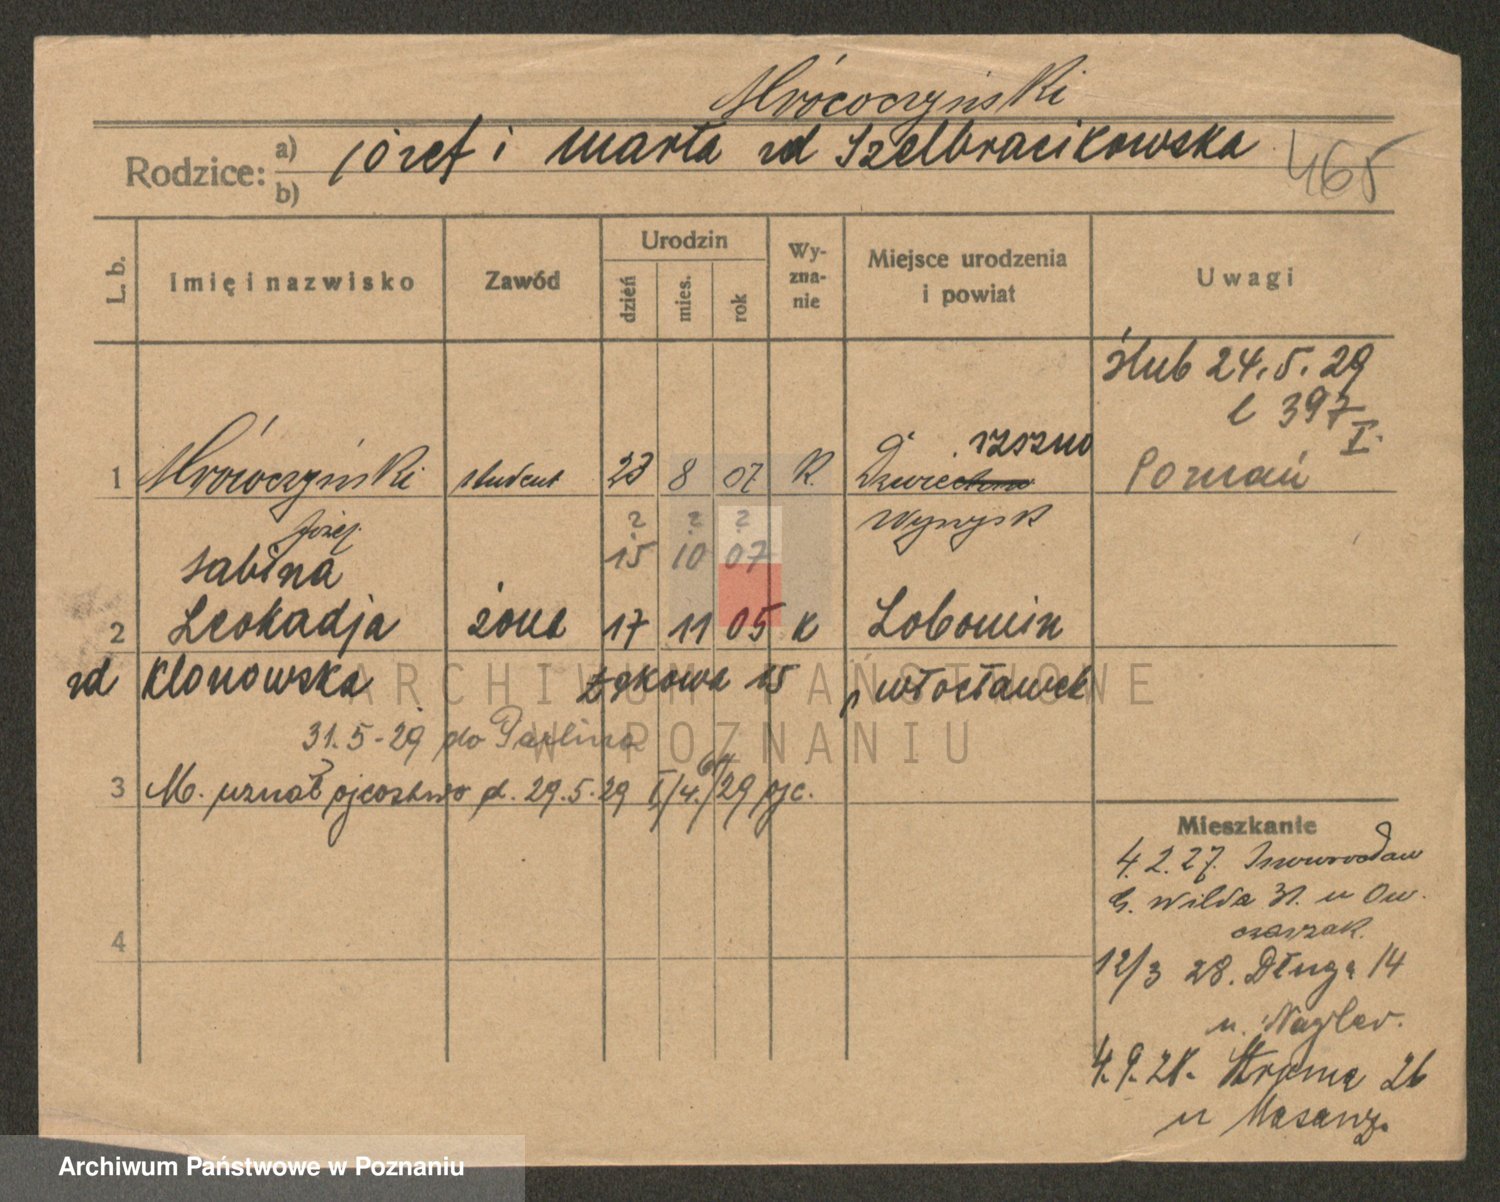 Mrócoczyński
Rodzice: a) józef i Marta zd Szelbracikowska
b)
465
L. b. Imię i nazwisko Zawód Urodzin dzień mies. rok Wyznanie Miejsce urodzenia i powiat Uwagi
ślub 24.5.29
l 397
I.
Poznań
1 Mrócoczyński student 23 8 07 K. rzszno
Józef ? ? ? Wyrzysk
Sabina 15 10 07
2 Leokadja żona 17 11 05 K Lobomin
zd Klonowska Łąkowa 15 p Włocławek
31.5-29 do Parlina
3 M. uznał ojcostwo d. 29.5.29 I/4./29 ojc.
4
Mieszkanie
4.2.27. Inowrocław
G. Wilda 31. u Owczarzak.
12/3 28. Długa 14
u. Nagler.
4.9.28. Strzoma 26
u Masanz.
ARCHIWUM PAŃSTWOWE
W POZNANIU
Archiwum Państwowe w Poznaniu